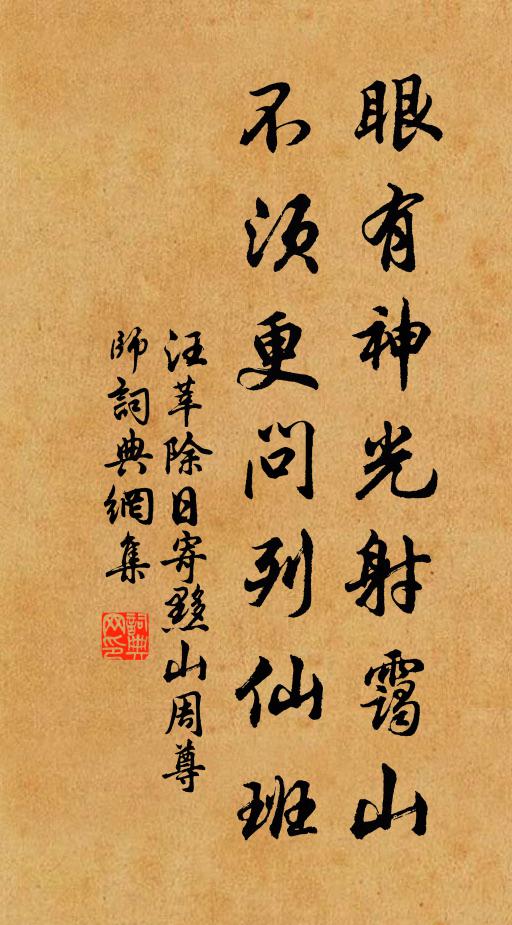 眼有神光射靄山
不須更問列仙班
汪莘除日寄黟山周尊
師詞典網集
詞典網印